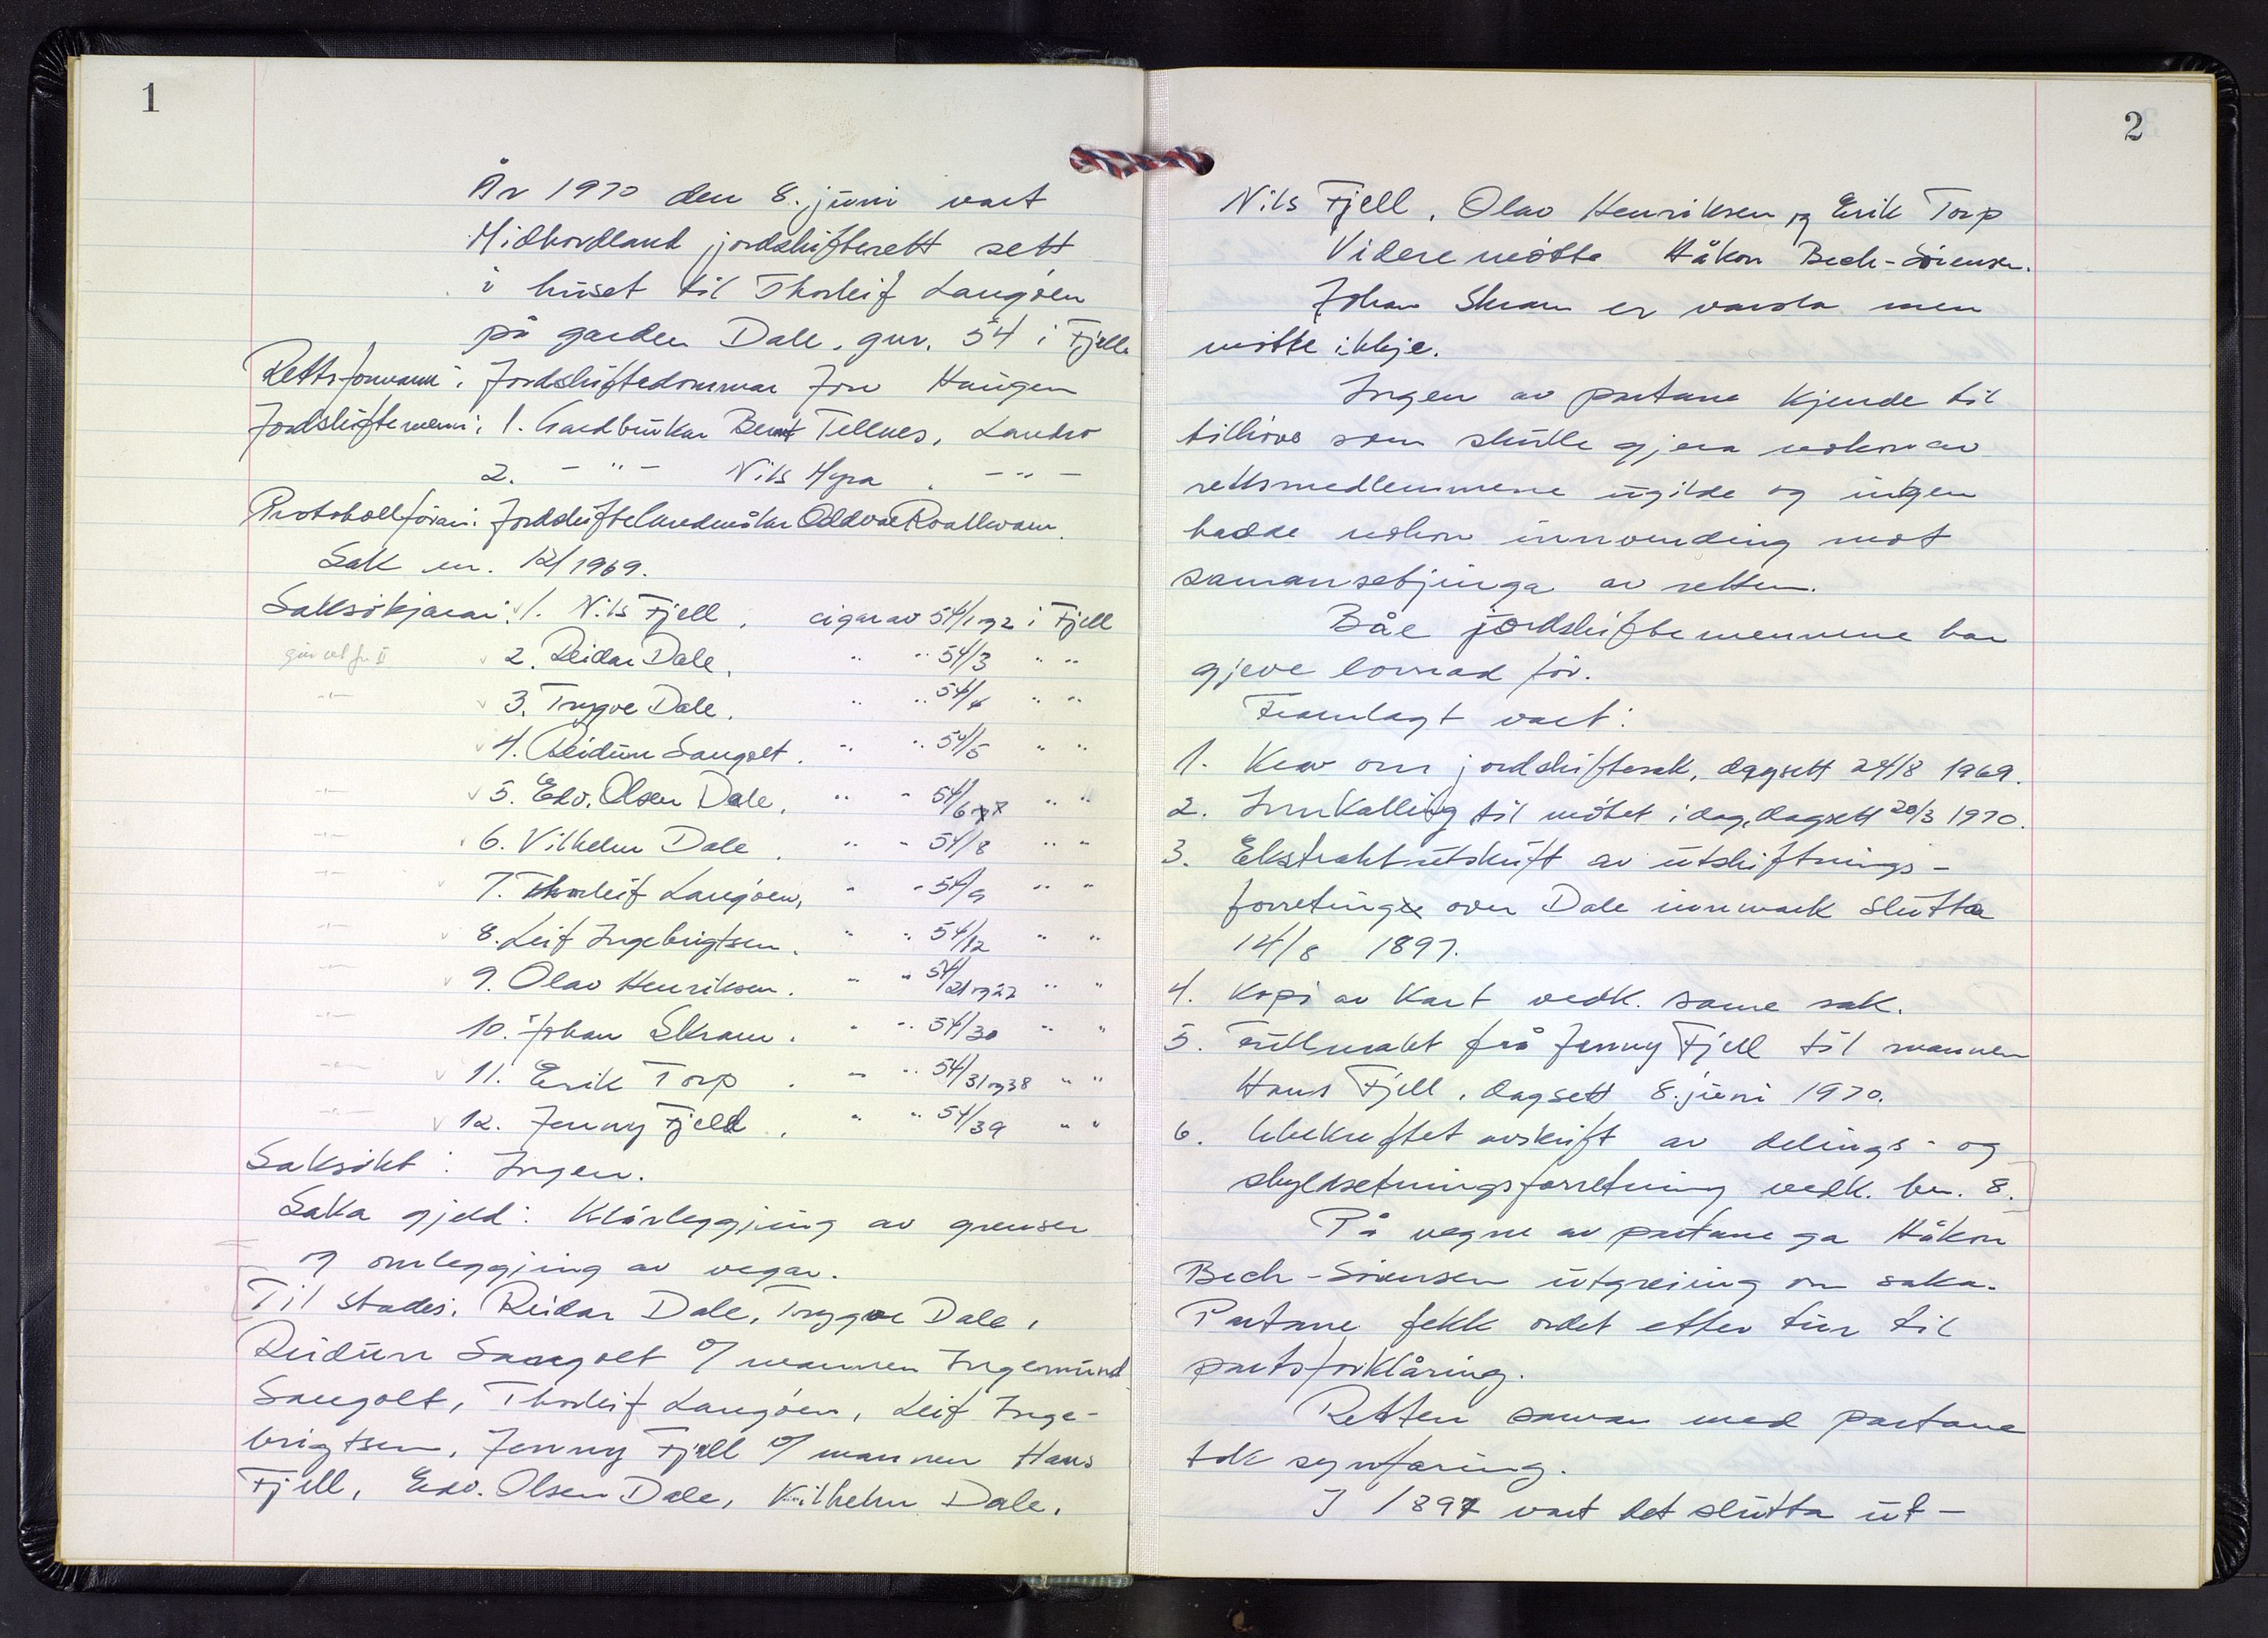 1
År 1970 den 8. juni vart
Midhordland jordskifterett sett
i huset til Thorleif Langøen
på garden Dale, gnr. 54 i Fjell.
Rettsformann: Jordskiftedommar Jon Haugen
Jordskiftemenn: 1. Gardbrukar Bernt Tellnes, Landro
2. - " - Nils Myra, - " -
Protokollførar: Jordskiftelandmålar Oddvar Roallkvam.
Sak nr. 12/1969.
Saksøkjarar: 1. Nils Fjell, eigar av 54/1 og 2 i Fjell
2. Reidar Dale, " " 54/3 " "
3. Trygve Dale, " " 54/4 " "
4. Reidun Sangolt, " " 54/5 " "
5. Edv. Olsen Dale, " " 54/6 og 7 " "
6. Vilhelm Dale, " " 54/8 " "
7. Thorleif Langøen, " " 54/9 " "
8. Leif Ingebrigtsen, " " 54/12 " "
9. Olav Henriksen, " " 54/21 og 22 " "
10. Johan Skram, " " 54/30 " "
11. Erik Torp, " " 54/31 og 38 " "
12. Jenny Fjell, " " 54/39 " "
Saksøkt: Ingen.
Saka gjeld: Klårleggjing av grenser
og omleggjing av vegar.
Til stades: Reidar Dale, Trygve Dale,
Reidun Sangolt v/ mannen Ingemund
Sangolt, Thorleif Langøen, Leif Inge-
brigtsen, Jenny Fjell v/ mannen Hans
Fjell, Edv. Olsen Dale, Vilhelm Dale,
2
Nils Fjell, Olav Henriksen og Erik Torp
Videre møtte Håkon Bech-Sørensen.
Johan Skram er varsla men
møtte ikkje.
Ingen av partane kjende til
tilhøve som skulle gjera nokon av
rettsmedlemmene ugilde og ingen
hadde nokon innvending mot
samansetjinga av retten.
Båe jordskiftemennene har
gjeve lovnad før.
Framlagt vart:
1. Krav om jordskiftesak, dagsett 29/8 1969.
2. Innkalling til møtet i dag, dagsett 20/3 1970.
3. Ekstraktutskrift av utskiftnings-
forretning over Dale innmark slutta
14/8 1897.
4. Kopi av kart vedk. same sak.
5. Fullmakt frå Jenny Fjell til mannen
Hans Fjell, dagsett 8. juni 1970.
6. Ubekreftet avskrift av delings- og
skyldsetningsforretning vedk. bn. 8.
På vegne av partane ga Håkon
Bech-Sørensen utgreiing om saka.
Partane fekk ordet etter tur til
partsforklåring.
Retten saman med partane
tok synfaring.
I 1897 vart det slutta ut-